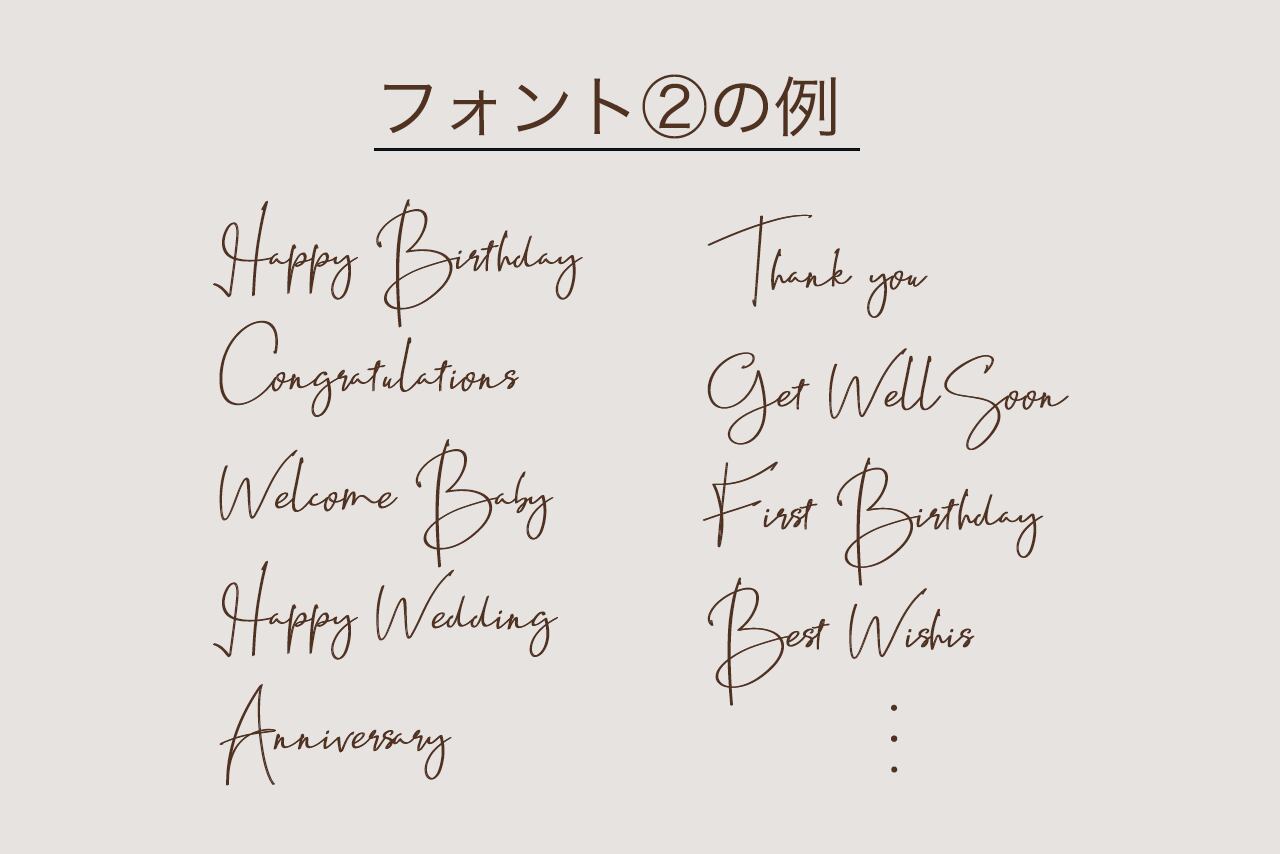 フォント②の例
Happy Birthday
Congratulations
Welcome Baby
Happy Wedding
Anniversary
Thank you
Get Well Soon
First Birthday
Best Wishis